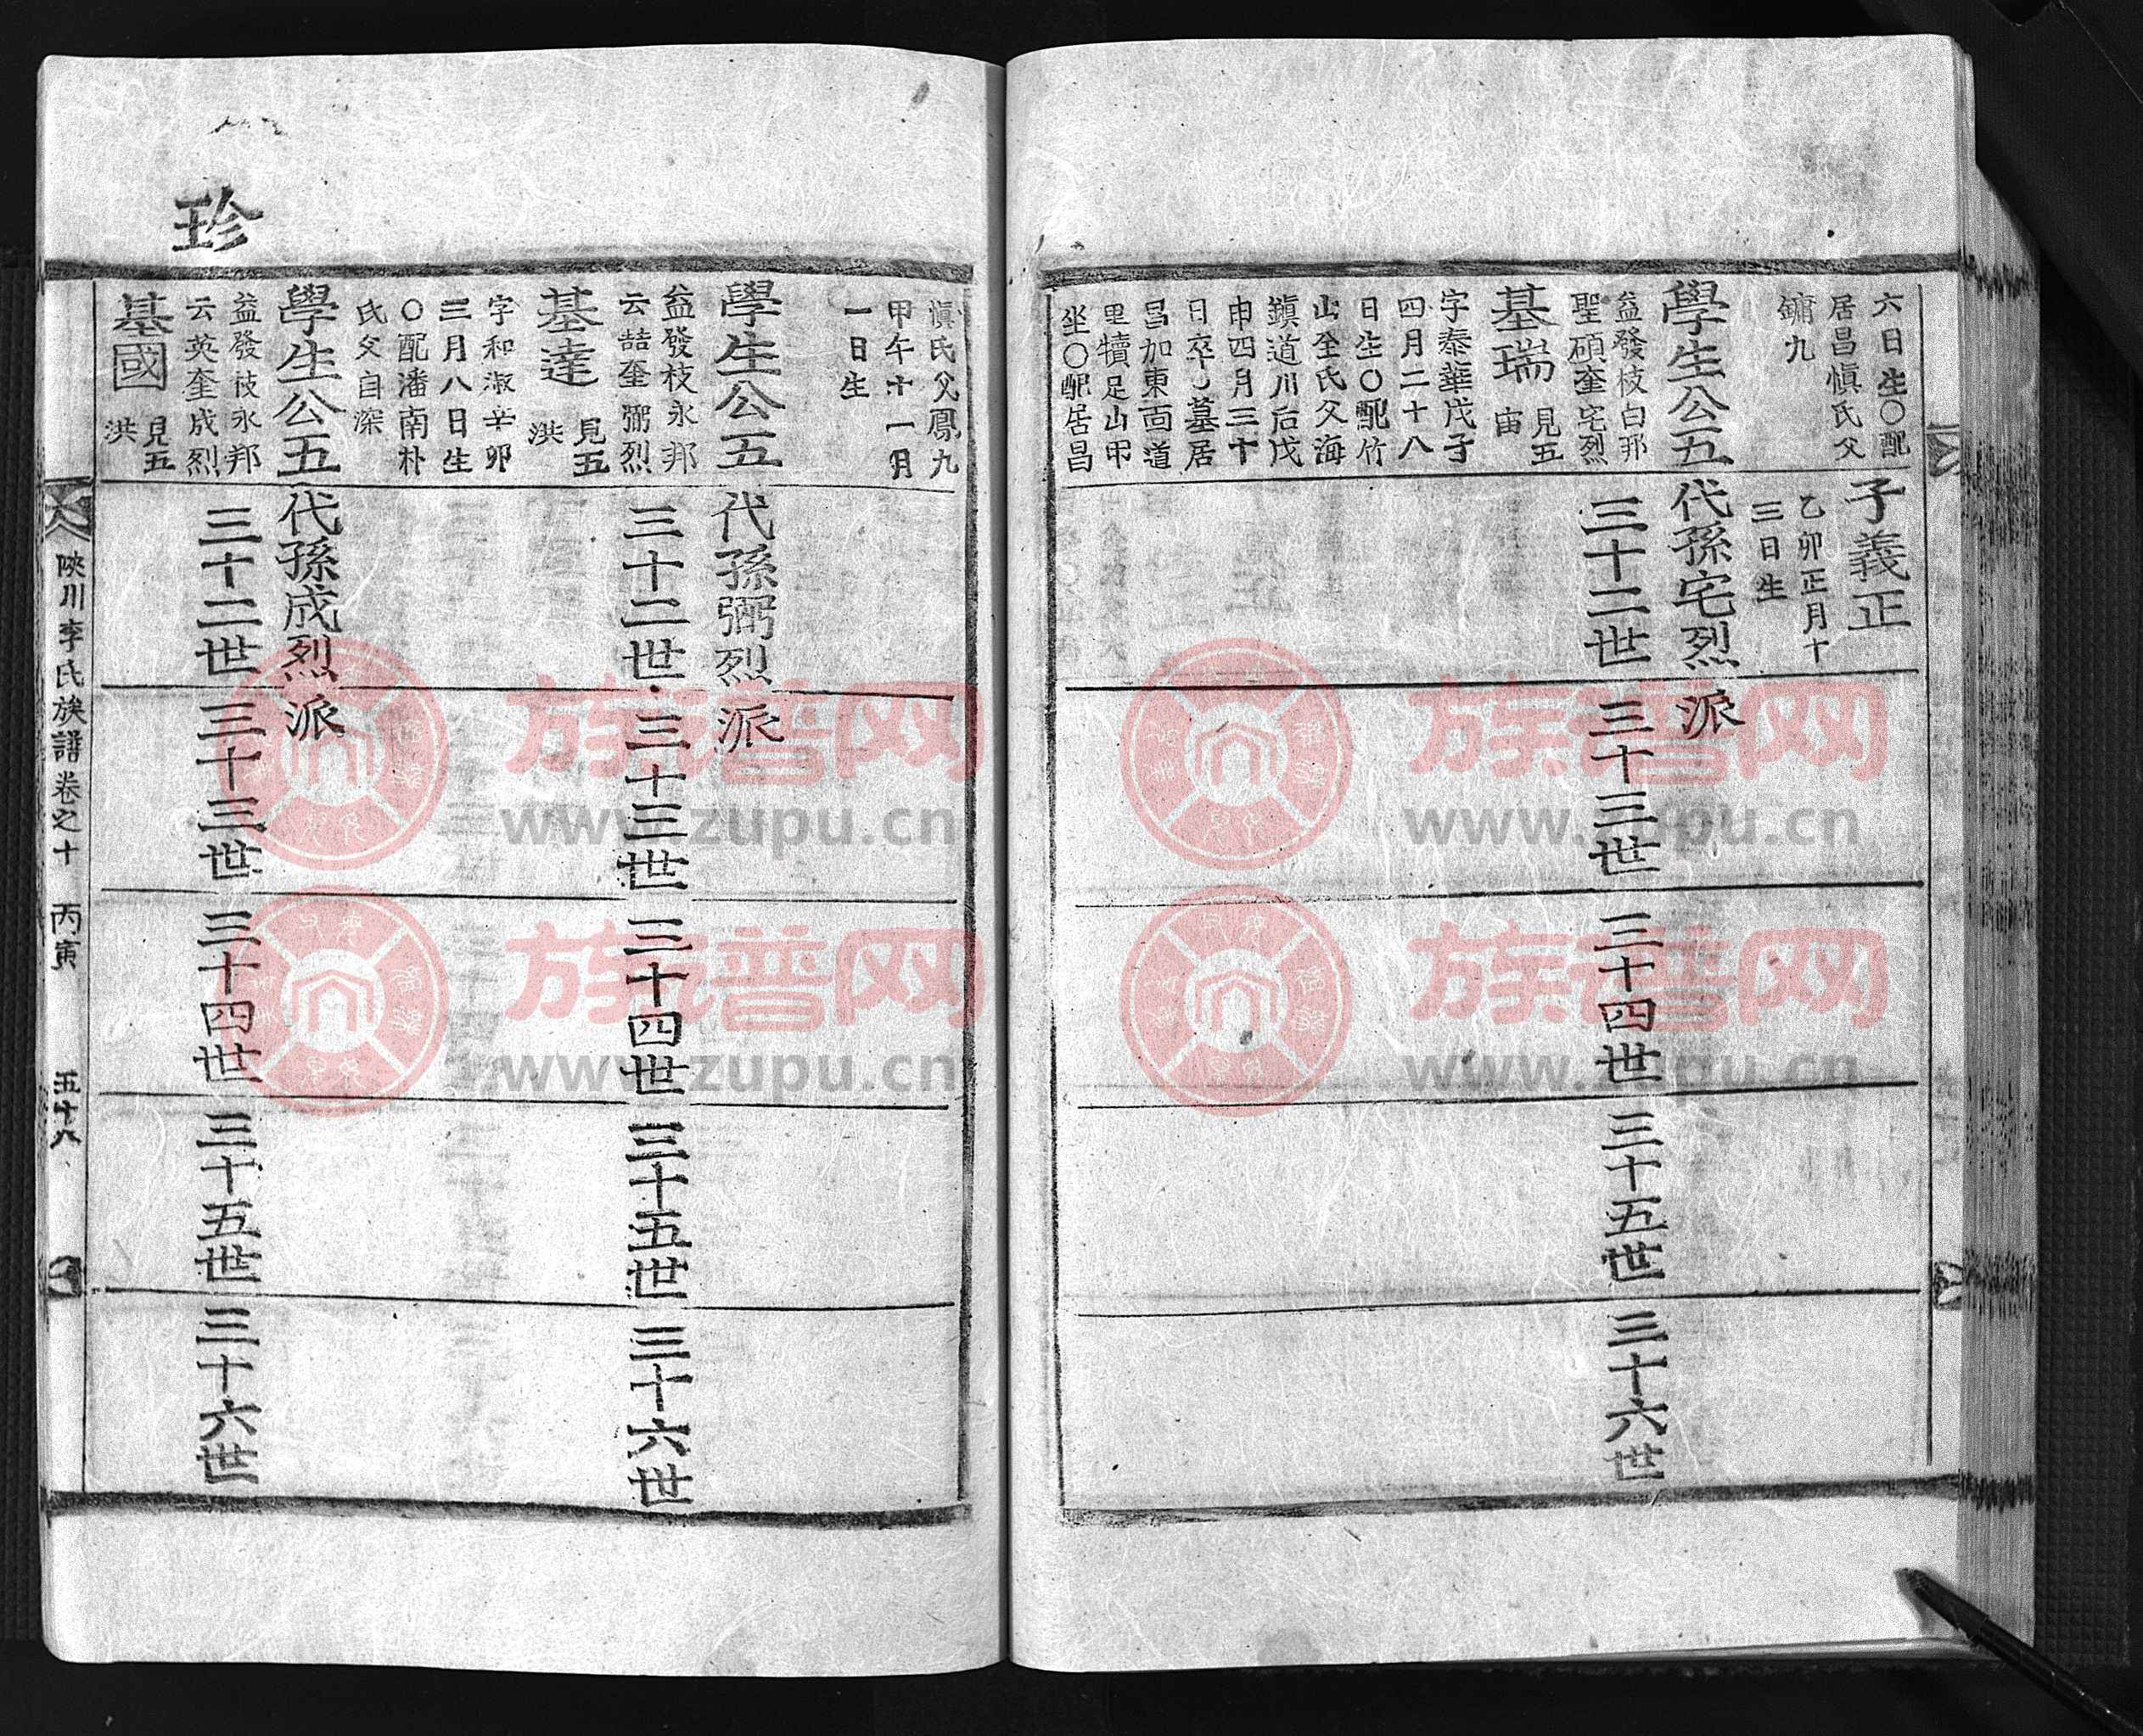 六日生〇配
居昌愼氏父
鏞九
子義正
乙卯正月十
三日生
學生公五代孫宅烈派
益發枝白邦
聖碩奎宅烈
三十二世
三十三世
三十四世
三十五世
三十六世
基瑞
見五
宙
字泰華戊子
四月二十八
日生〇配竹
山全氏父海
鎭道川后戊
申四月三十
日卒〇墓居
昌加東面道
里犢足山甲
坐〇配居昌
愼氏父鳳九
甲午十一月
一日生
學生公五代孫弼烈派
益發枝永邦
云喆奎弼烈
三十二世
三十三世
三十四世
三十五世
三十六世
基達
見五
洪
字和淑辛卯
三月八日生
〇配潘南朴
氏父自深
學生公五代孫成烈派
益發枝永邦
云英奎成烈
三十二世
三十三世
三十四世
三十五世
三十六世
基國
見五
洪
珍
陜川李氏族譜卷之十 丙寅 五十八
族谱网
www.zupu.cn
族谱网
www.zupu.cn
族谱网
www.zupu.cn
族谱网
www.zupu.cn